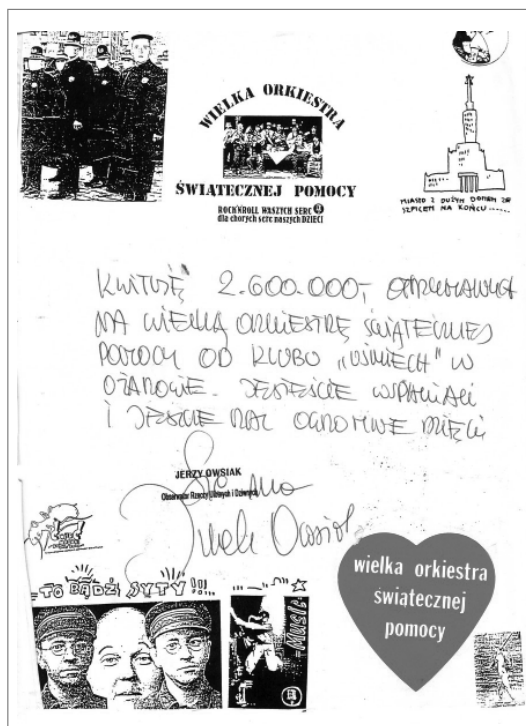 WIELKA ORKIESTRA
ŚWIĄTECZNEJ POMOCY
ROCK'N'ROLL WASZYCH SERC
dla chorych serc naszych DZIECI
MIASTO Z DUŻYM DOMEM ZE
SZPICEM NA KOŃCU......
KWITUJĘ 2.600.000,- OTRZYMANYCH
NA WIELKĄ ORKIESTRĘ ŚWIĄTECZNEJ
POMOCY OD KLUBU "UŚMIECH" W
OŻAROWIE. JESTEŚCIE WSPANIALI
I JESZCZE RAZ OGROMNE DZIĘKI
JERZY OWSIAK
Obserwator Rzeczy Ulotnych i Dziwnych
Siema
Jurek Owsiak
TO BĄDŹ SYTY!!...
MUSIC
wielka orkiestra
świątecznej
pomocy